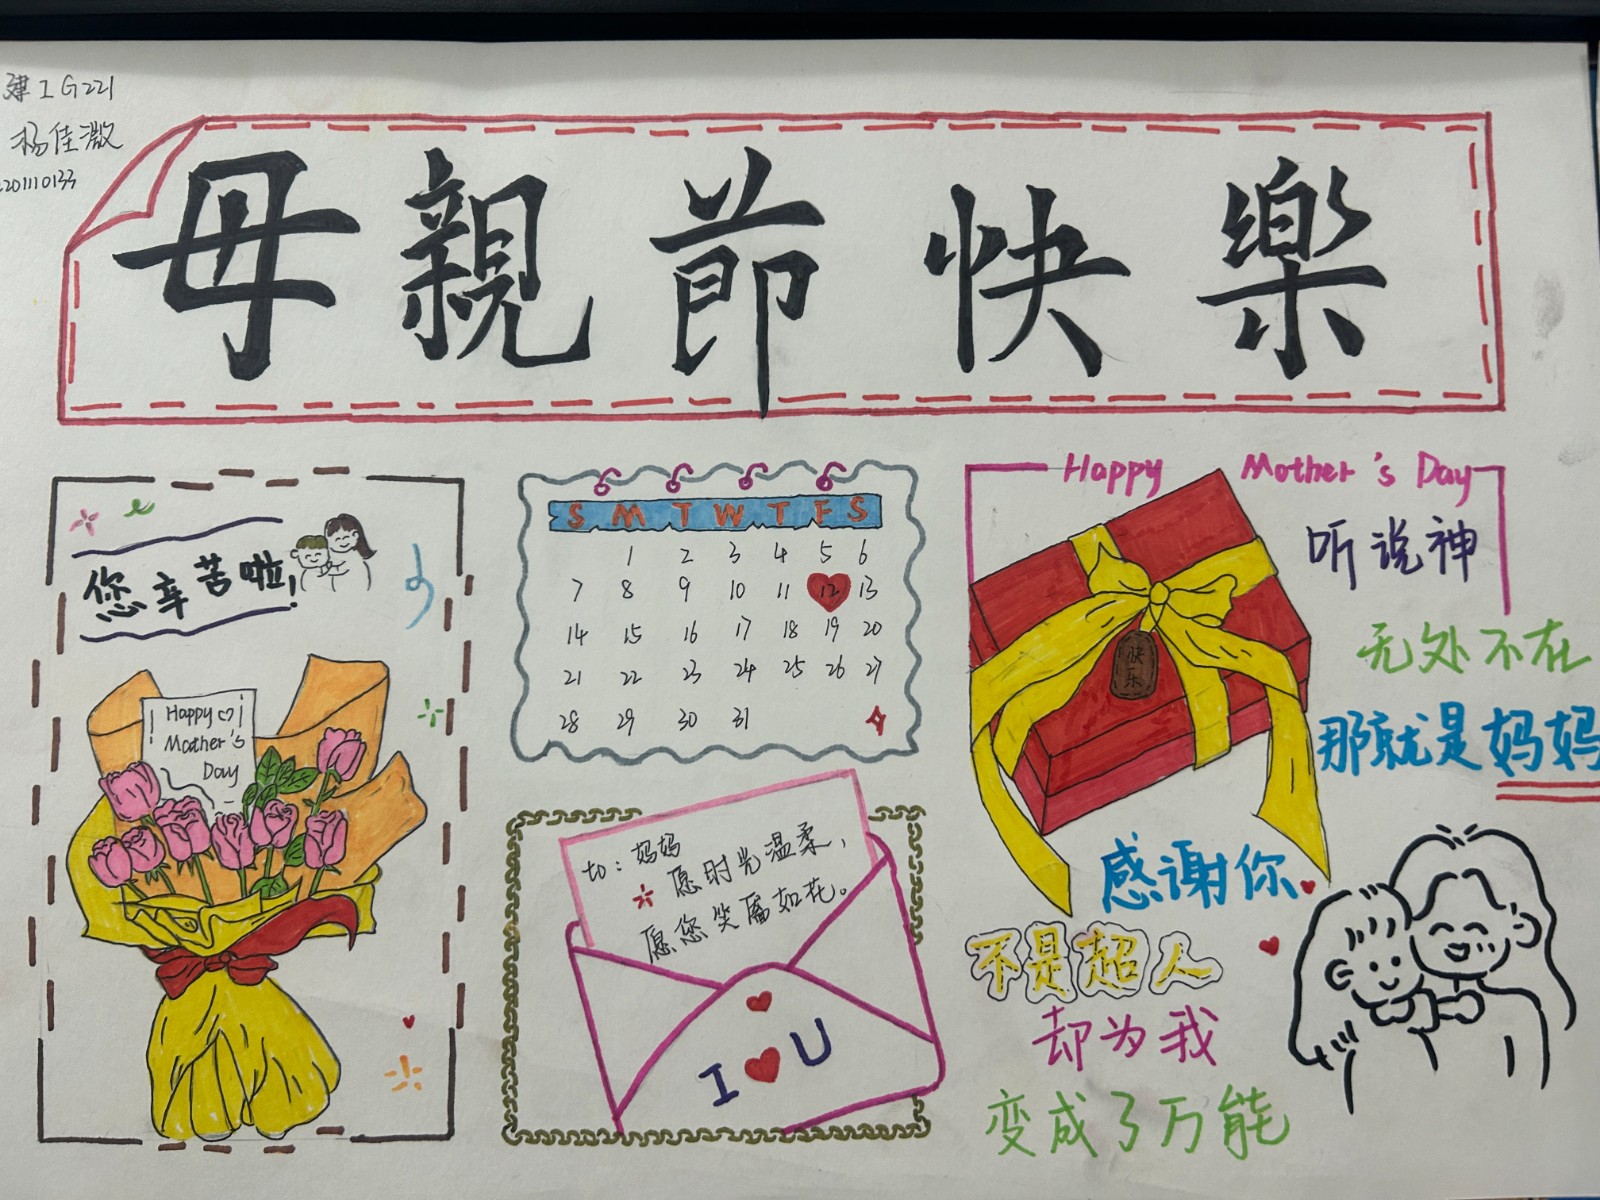 建工G221
杨佳溦
母親節快樂
您辛苦啦!
Happy
Mother's
Day
S M T W T F S
1 2 3 4 5 6
7 8 9 10 11 12 13
14 15 16 17 18 19 20
21 22 23 24 25 26 27
28 29 30 31
to: 妈妈
愿时光温柔,
愿您笑靥如花。
I U
Happy Mother's Day
听说神
无处不在
那就是妈妈
快乐
感谢你
不是超人
却为我
变成了万能